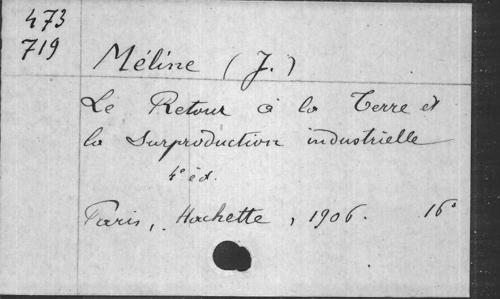 473
719
Méline (J.)
Le Retour à la Terre et
la Surproduction industrielle
4e éd.
Paris, Hachette, 1906. 16°